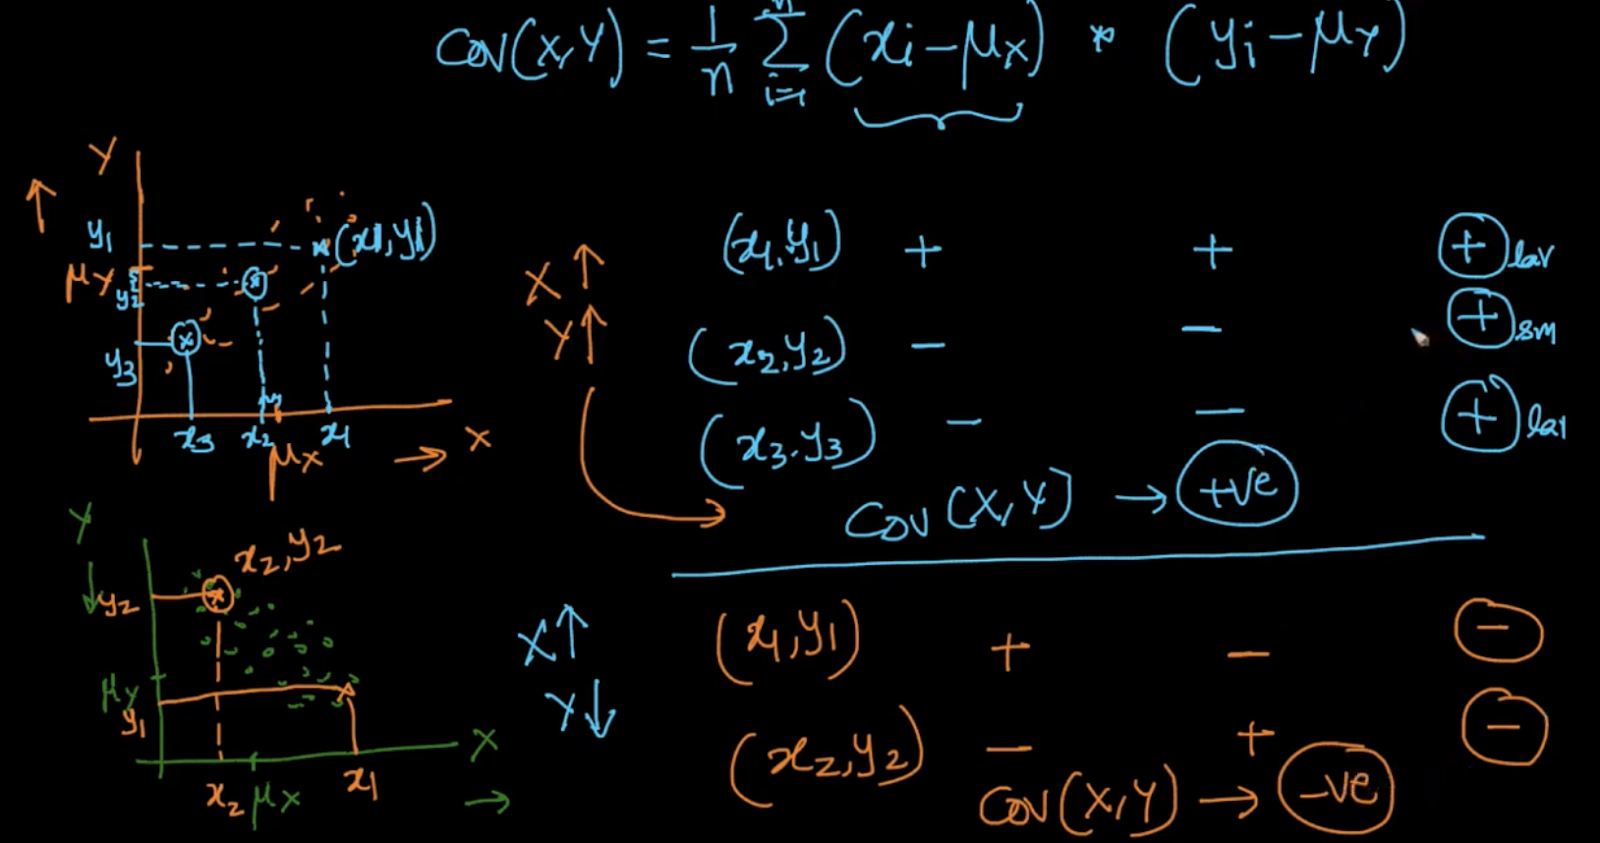 Cov(X,Y) = 1/n Σ i=1 n (xi-μx) * (yi-μy)
Y
y1
(x1,y1)
μy
y2
y3
x3 x2 x1
μx
X
X↑
Y↑
(x1,y1) + + + lar
(x2,y2) - - + sm
(x3,y3) - - + lar
Cov(X,Y) → +ve
Y
x2,y2
y2
μy
y1
x2 μx x1
X
X↑
Y↓
(x1,y1) + - -
(x2,y2) - + -
Cov(X,Y) → -ve